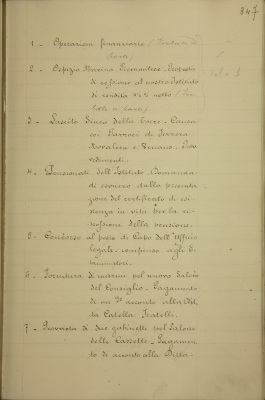 347
1 - Operazioni finanziarie
2 - Ospizio Marino Piemontese - Proposta
di cessione al nostro Istituto
di rendita 3½% netto
3 - Lascito Sineo della Torre - Causa
coi Parroci di
e - Prov
vedimenti.
4 - Pensionati dell'Istituto - Domanda
di esonero dalla presenta
zione del certificato di esi
stenza in vita per la ri
scossione della pensione.
5 - Concorso al posto di Capo dell'Ufficio
Legale - compenso agli E
saminatori.
6 - Fornitura di marmi pel nuovo Salone
del Consiglio - Pagamento
di un 2° acconto alla Dit
ta Catella Fratelli.
7 - Provvista di due gabinetti pel Salone
delle Cassette - Pagamen
to di acconto alla Ditta